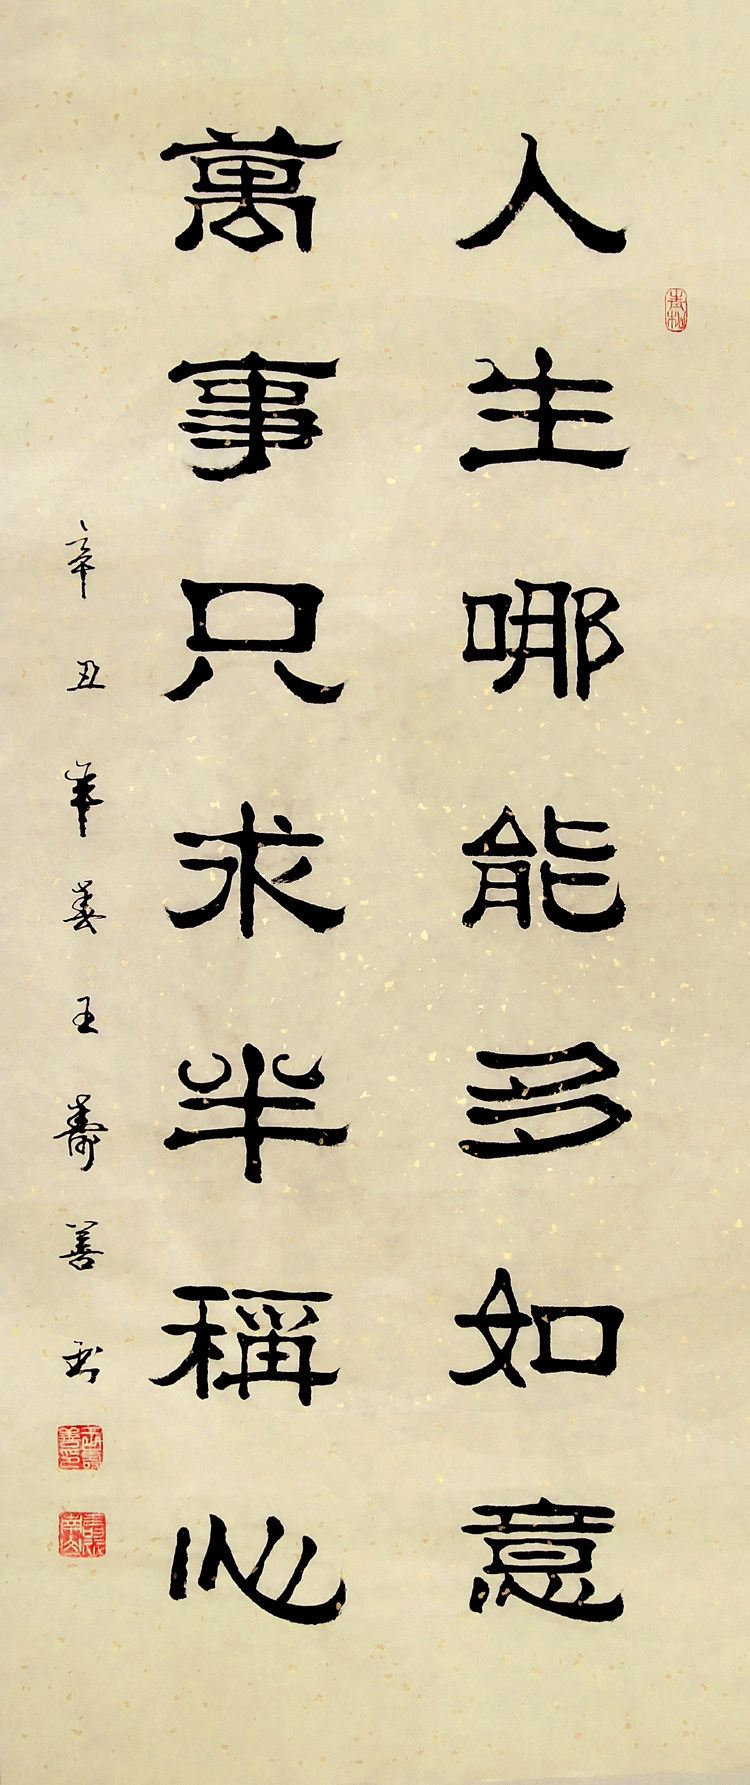 人生哪能多如意
萬事只求半稱心
辛丑年春王壽善書